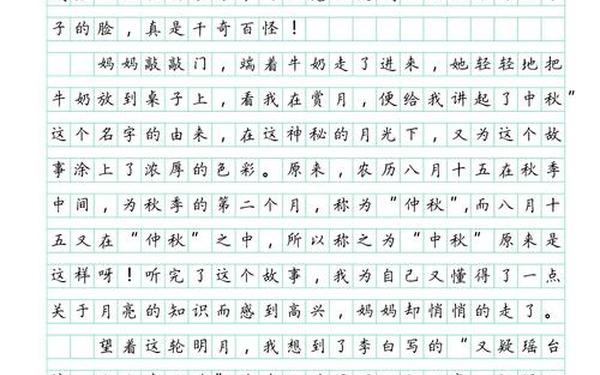 子的脸，真是千奇百怪！
妈妈敲敲门，端着牛奶走了进来，她轻轻地把
牛奶放到桌子上，看我在赏月，便给我讲起了中秋”
这个名字的由来，在这神秘的月光下，又为这个故
事涂上了浓厚的色彩。原来，农历八月十五在秋季
中间，为秋季的第二个月，称为“仲秋”，而八月十
五又在“仲秋”之中，所以称之为“中秋”原来是
这样呀！听完了这个故事，我为自己又懂得了一点
关于月亮的知识而感到高兴，妈妈却悄悄的走了。
望着这轮明月，我想到了李白写的“又疑瑶台